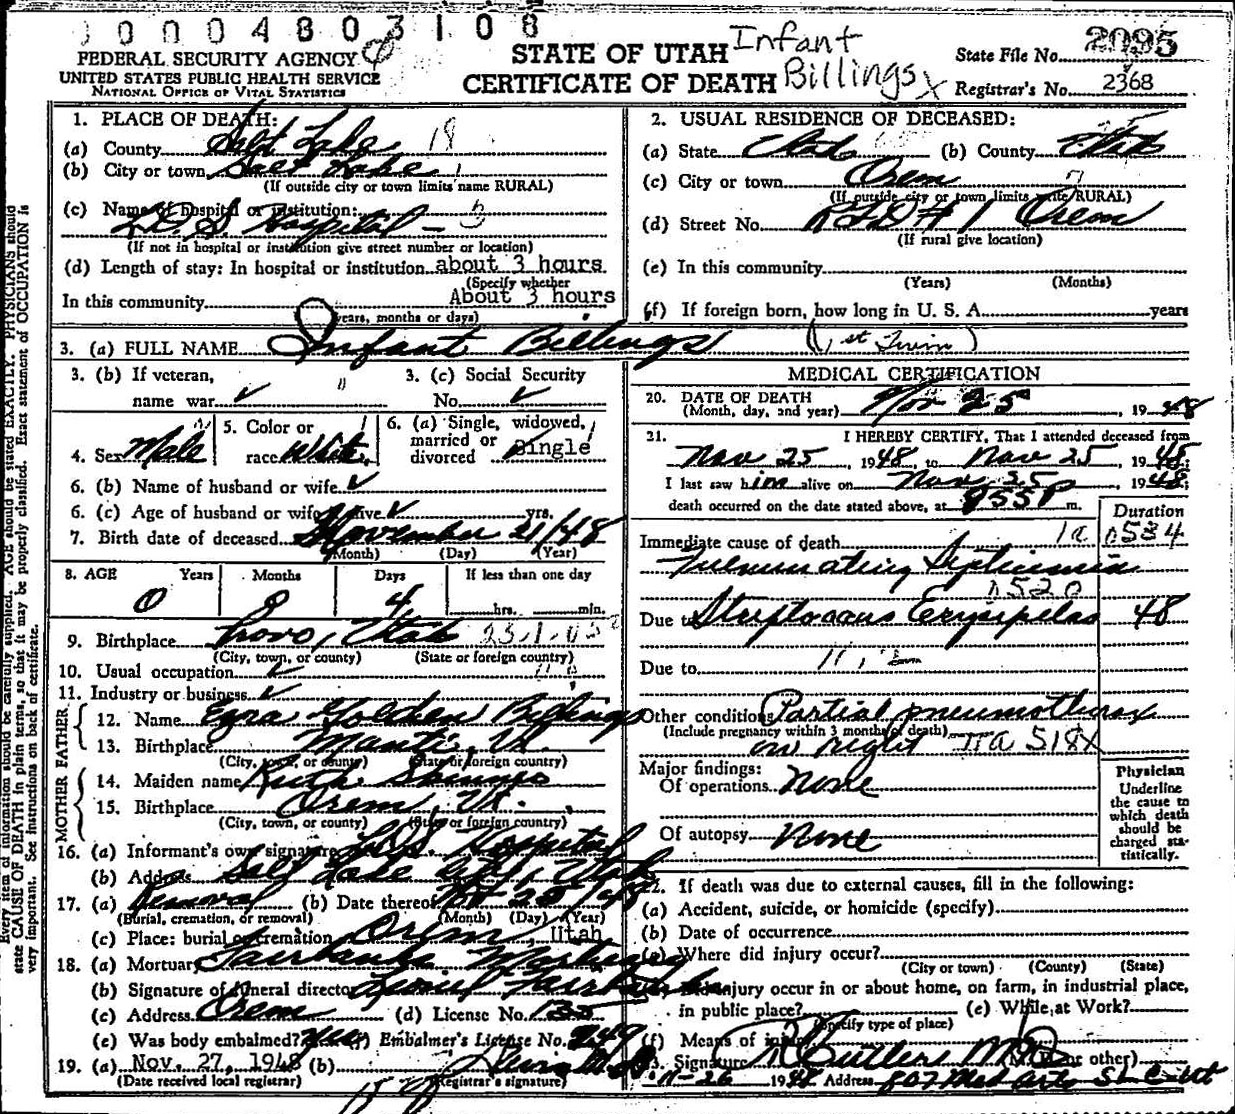 0000480 3108
FEDERAL SECURITY AGENCY
UNITED STATES PUBLIC HEALTH SERVICE
NATIONAL OFFICE OF VITAL STATISTICS
STATE OF UTAH
CERTIFICATE OF DEATH
Infant
Billings x
State File No. 2095
Registrar's No. 2368
1. PLACE OF DEATH:
(a) County Salt Lake 18
(b) City or town Salt Lake 1
(If outside city or town limits name RURAL)
(c) Name of hospital or institution:
L.D.S. Hospital - 3
(If not in hospital or institution give street number or location)
(d) Length of stay: In hospital or institution about 3 hours
(Specify whether
In this community About 3 hours
years, months or days)
2. USUAL RESIDENCE OF DECEASED:
(a) State Utah (b) County Utah
(c) City or town Orem 7
(If outside city or town limits write RURAL)
(d) Street No. RFD #1 Orem
(If rural give location)
(e) In this community
(Years) (Months)
(f) If foreign born, how long in U. S. A. years
3. (a) FULL NAME Infant Billings (1st Twin)
3. (b) If veteran,
name war ✓
3. (c) Social Security
No. ✓
4. Sex Male
5. Color or
race White
6. (a) Single, widowed,
married or
divorced Single
6. (b) Name of husband or wife ✓
6. (c) Age of husband or wife alive ✓ yrs.
7. Birth date of deceased November 21/48
(Month) (Day) (Year)
8. AGE Years Months Days If less than one day
0 0 4 hrs. min.
9. Birthplace Provo, Utah
(City, town, or county) (State or foreign country)
10. Usual occupation ✓
11. Industry or business ✓
FATHER
12. Name Ezra Golden Billings
13. Birthplace Manti, Ut.
(City, town, or county) (State or foreign country)
MOTHER
14. Maiden name Ruth
15. Birthplace Orem, Ut.
(City, town, or county) (State or foreign country)
16. (a) Informant's own signature L.D.S. Hospital
(b) Address Salt Lake City, Utah
17. (a) Removal (b) Date thereof /48
(Burial, cremation, or removal) (Month) (Day) (Year)
(c) Place: burial or cremation Orem, Utah
18. (a) Mortuary Mortuary
(b) Signature of funeral director
(c) Address Orem (d) License No.
(e) Was body embalmed? Yes (f) Embalmer's License No.
19. (a) Nov. 27, 1948 (b)
(Date received local registrar) (Registrar's signature)
MEDICAL CERTIFICATION
20. DATE OF DEATH
(Month, day, and year) Nov 25, 1948
21. I HEREBY CERTIFY, That I attended deceased from
Nov 25, 1948, to Nov 25, 1948;
I last saw him alive on Nov 25, 1948;
death occurred on the date stated above, at 855P m.
Duration
Immediate cause of death 0534
Fulminating Septicemia
0520
Due to Streptococcus Erysipelas 48
Due to
Other conditions Partial pneumothorax
(Include pregnancy within 3 months of death)
on right
Major findings:
Of operations None
Of autopsy None
Physician
Underline
the cause to
which death
should be
charged sta-
tistically.
22. If death was due to external causes, fill in the following:
(a) Accident, suicide, or homicide (specify)
(b) Date of occurrence
(c) Where did injury occur?
(City or town) (County) (State)
(d) Did injury occur in or about home, on farm, in industrial place,
in public place? (e) While at Work?
(Specify type of place)
(f) Means of injury
23. Signature Butler MD (M.D. or other)
11-26 1948 Address 807 Med Arts
Every item of information should be carefully supplied. AGE should be stated EXACTLY. PHYSICIANS should
state CAUSE OF DEATH in plain terms, so that it may be properly classified. Exact statement of OCCUPATION is
very important. See instructions on back of certificate.